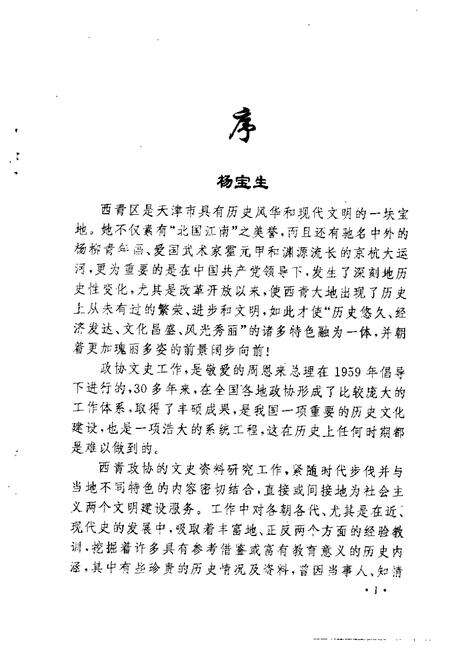 序
杨宝生
西青区是天津市具有历史风华和现代文明的一块宝
地。她不仅素有“北国江南”之美誉，而且还有驰名中外的
杨柳青年画、爱国武术家霍元甲和渊源流长的京杭大运
河，更为重要的是在中国共产党领导下，发生了深刻地历
史性变化，尤其是改革开放以来，使西青大地出现了历史
上从未有过的繁荣、进步和文明，如此才使“历史悠久、经
济发达、文化昌盛、风光秀丽”的诸多特色融为一体，并朝
着更加瑰丽多姿的前景阔步向前！
政协文史工作，是敬爱的周恩来总理在1959年倡导
下进行的，30多年来，在全国各地政协形成了比较庞大的
工作体系，取得了丰硕成果，是我国一项重要的历史文化
建设，也是一项浩大的系统工程，这在历史上任何时期都
是难以做到的。
西青政协的文史资料研究工作，紧随时代步伐并与
当地不同特色的内容密切结合，直接或间接地为社会主
义两个文明建设服务。工作中对各朝各代、尤其是在近、
现代史的发展中，吸取着丰富地、正反两个方面的经验教
训，挖掘着许多具有参考借鉴或富有教育意义的历史内
涵，其中有些珍贵的历史情况及资料，曾因当事人、知清
·1·